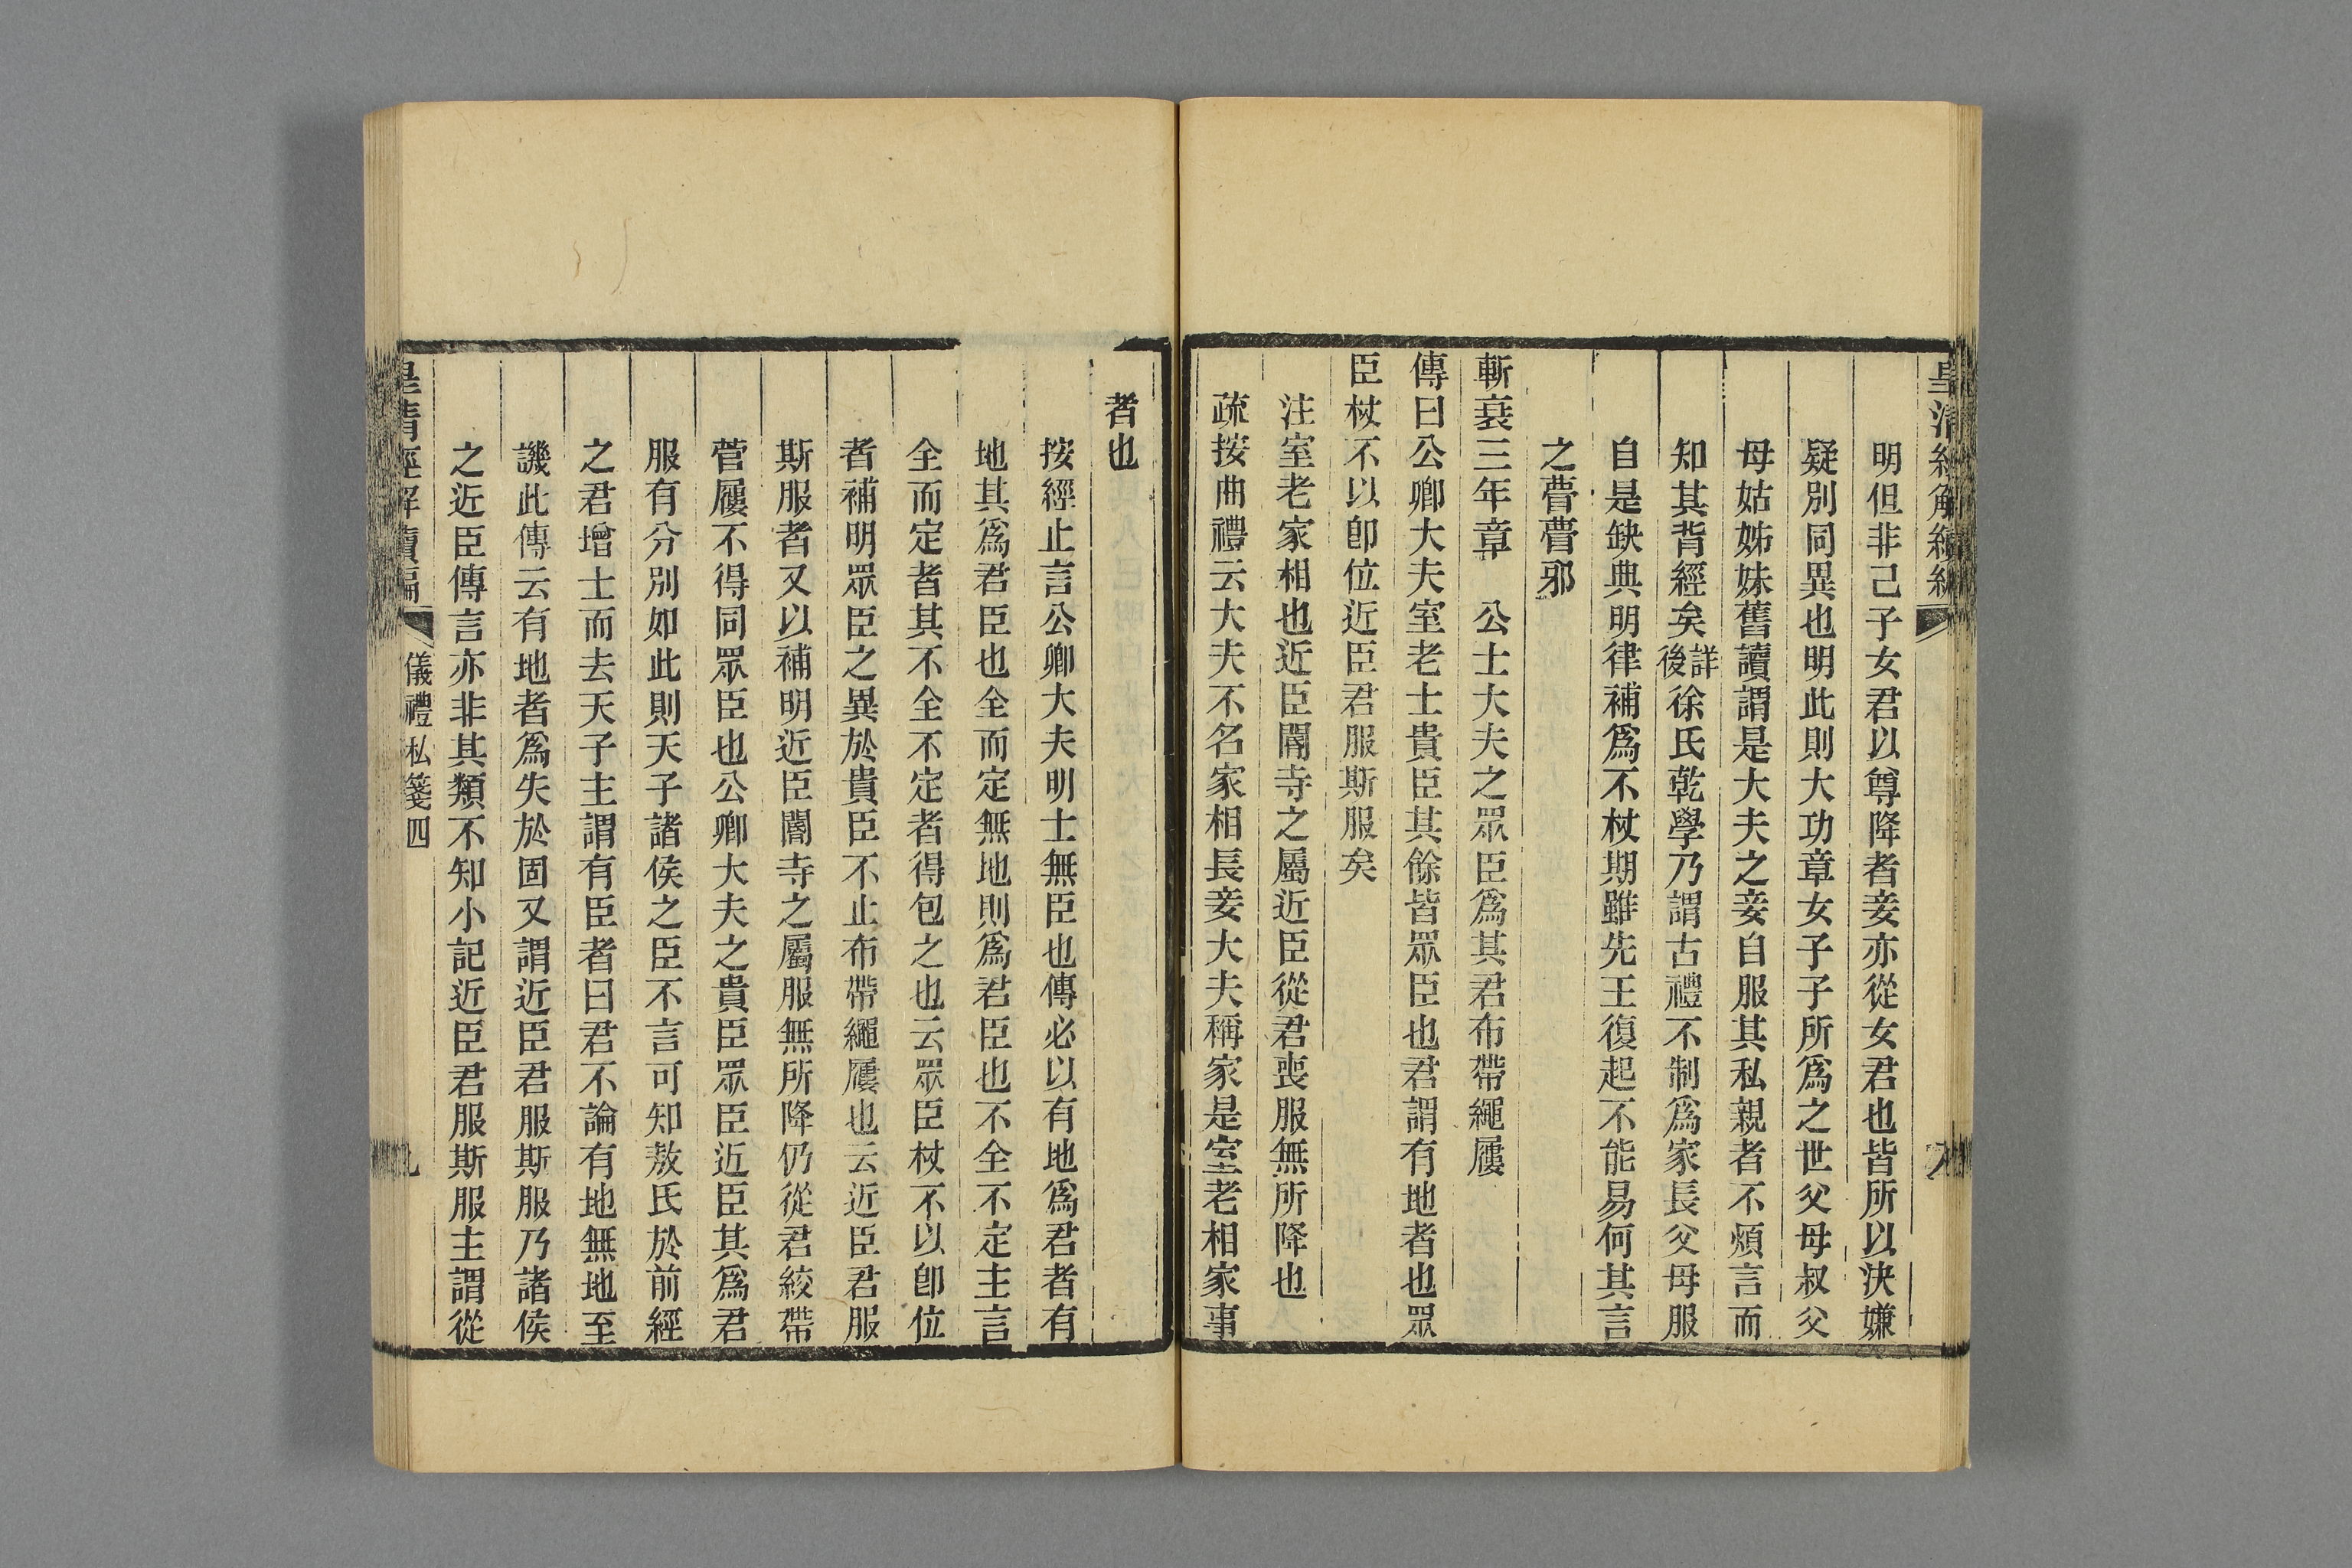 皇清經解續編
明但非己子女君以尊降者妾亦從女君也皆所以決嫌
疑別同異也明此則大功章女子子所爲之世父母叔父
母姑姊妹舊讀謂是大夫之妾自服其私親者不煩言而
知其背經矣詳後徐氏乾學乃謂古禮不制爲家長父母服
自是缺典明律補爲不杖期雖先王復起不能易何其言
之瞢瞢邪
斬衰三年章 公士大夫之眾臣爲其君布帶繩屨
傳曰公卿大夫室老士貴臣其餘皆眾臣也君謂有地者也眾
臣杖不以卽位近臣君服斯服矣
注室老家相也近臣閽寺之屬近臣從君喪服無所降也
疏按曲禮云大夫不名家相長妾大夫稱家是室老相家事
者也
按經止言公卿大夫明士無臣也傳必以有地爲君者有
地其爲君臣也全而定無地則爲君臣也不全不定主言
全而定者其不全不定者得包之也云眾臣杖不以卽位
者補明眾臣之異於貴臣不止布帶繩屨也云近臣君服
斯服者又以補明近臣閽寺之屬服無所降仍從君絞帶
菅屨不得同眾臣也公卿大夫之貴臣眾臣近臣其爲君
服有分別如此則天子諸侯之臣不言可知敖氏於前經
之君增士而去天子主謂有臣者曰君不論有地無地至
譏此傳云有地者爲失於固又謂近臣君服斯服乃諸侯
之近臣傳言亦非其類不知小記近臣君服斯服主謂從
皇清經解續編
儀禮私箋四
九